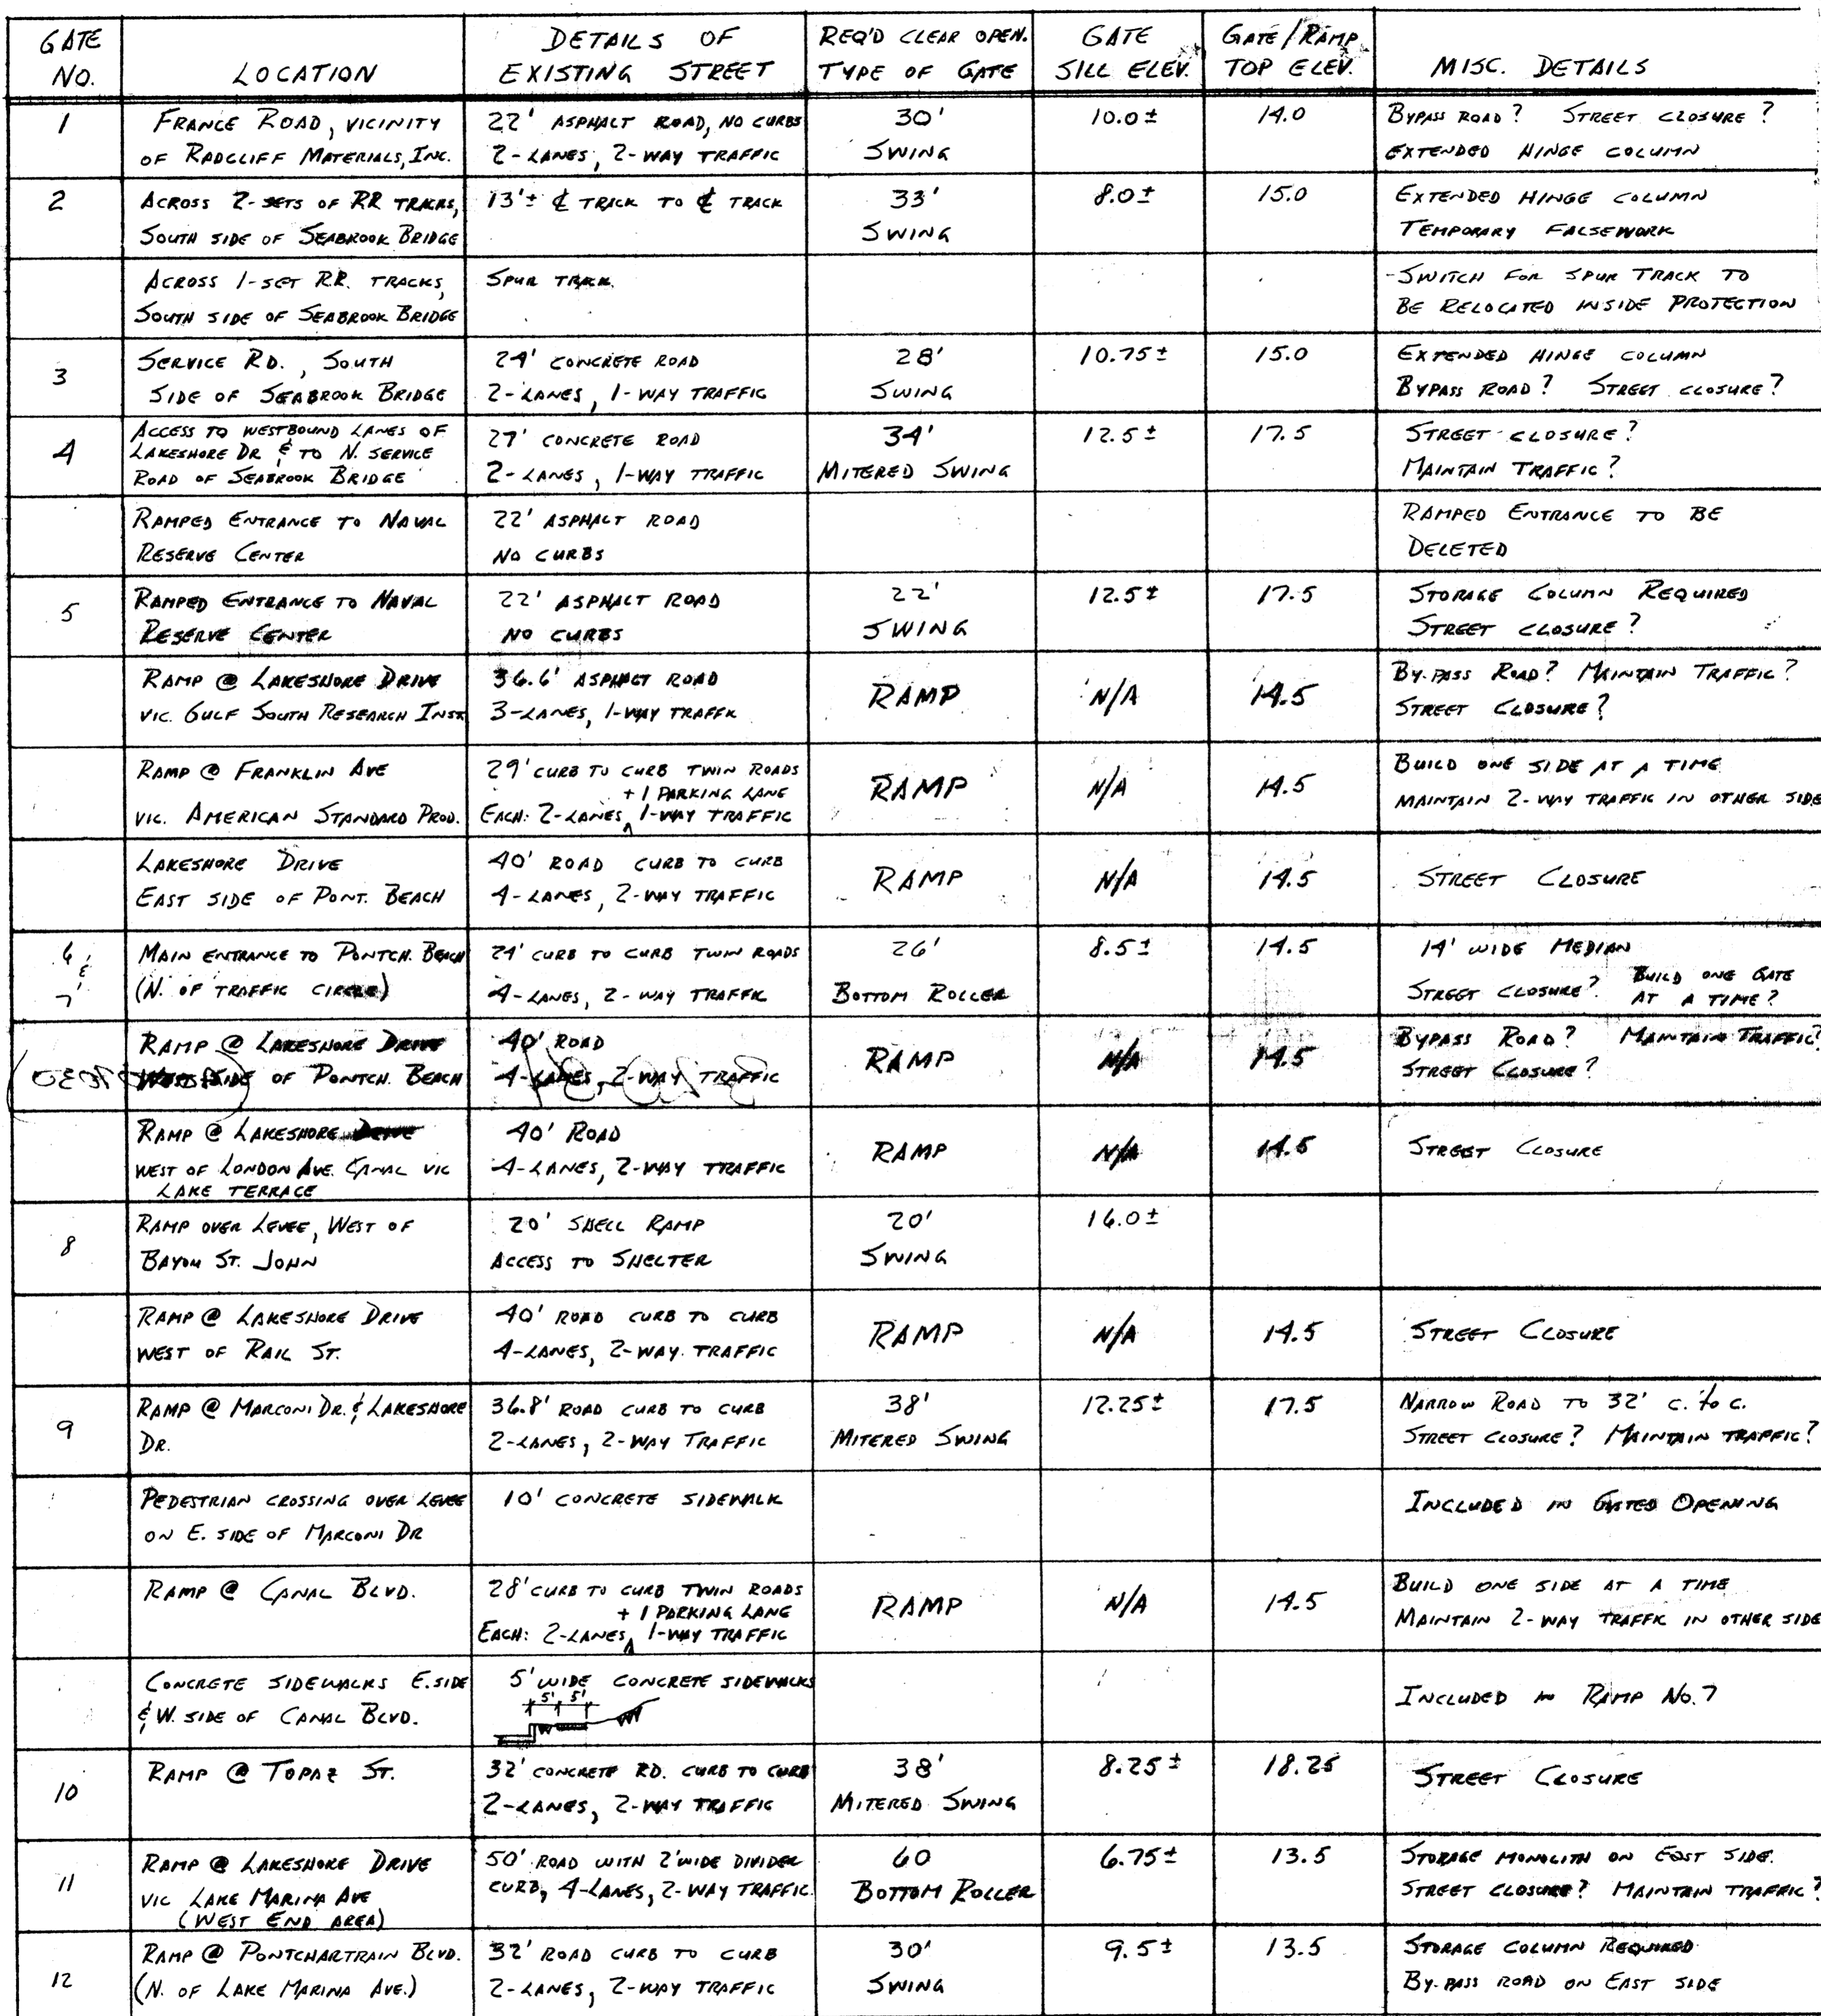 GATE NO.
LOCATION
DETAILS OF EXISTING STREET
REQ'D CLEAR OPEN. TYPE OF GATE
GATE SILL ELEV.
GATE/RAMP TOP ELEV.
MISC. DETAILS
1
FRANCE ROAD, VICINITY
OF RADCLIFF MATERIALS, INC.
22' ASPHALT ROAD, NO CURBS
2-LANES, 2-WAY TRAFFIC
30'
SWING
10.0±
14.0
BYPASS ROAD? STREET CLOSURE?
EXTENDED HINGE COLUMN
2
ACROSS 2-SETS OF RR TRACKS,
SOUTH SIDE OF SEABROOK BRIDGE
13'± ℄ TRACK TO ℄ TRACK
33'
SWING
8.0±
15.0
EXTENDED HINGE COLUMN
TEMPORARY FALSEWORK
ACROSS 1-SET RR. TRACKS,
SOUTH SIDE OF SEABROOK BRIDGE
SPUR TRACK.
-SWITCH FOR SPUR TRACK TO
BE RELOCATED INSIDE PROTECTION
3
SERVICE RD., SOUTH
SIDE OF SEABROOK BRIDGE
24' CONCRETE ROAD
2-LANES, 1-WAY TRAFFIC
28'
SWING
10.75±
15.0
EXTENDED HINGE COLUMN
BYPASS ROAD? STREET CLOSURE?
4
ACCESS TO WESTBOUND LANES OF
LAKESHORE DR & TO N. SERVICE
ROAD OF SEABROOK BRIDGE
27' CONCRETE ROAD
2-LANES, 1-WAY TRAFFIC
34'
MITERED SWING
12.5±
17.5
STREET CLOSURE?
MAINTAIN TRAFFIC?
RAMPED ENTRANCE TO NAVAL
RESERVE CENTER
22' ASPHALT ROAD
NO CURBS
RAMPED ENTRANCE TO BE
DELETED
5
RAMPED ENTRANCE TO NAVAL
RESERVE CENTER
22' ASPHALT ROAD
NO CURBS
22'
SWING
12.5±
17.5
STORAGE COLUMN REQUIRED
STREET CLOSURE?
RAMP @ LAKESHORE DRIVE
VIC. GULF SOUTH RESEARCH INST.
36.6' ASPHALT ROAD
3-LANES, 1-WAY TRAFFIC
RAMP
N/A
14.5
BY-PASS ROAD? MAINTAIN TRAFFIC?
STREET CLOSURE?
RAMP @ FRANKLIN AVE
VIC. AMERICAN STANDARD PROD.
29' CURB TO CURB TWIN ROADS
+ 1 PARKING LANE
EACH: 2-LANES, 1-WAY TRAFFIC
RAMP
N/A
14.5
BUILD ONE SIDE AT A TIME
MAINTAIN 2-WAY TRAFFIC IN OTHER SIDE
LAKESHORE DRIVE
EAST SIDE OF PONT. BEACH
40' ROAD CURB TO CURB
4-LANES, 2-WAY TRAFFIC
RAMP
N/A
14.5
STREET CLOSURE
6 &
7
MAIN ENTRANCE TO PONTCH. BEACH
(N. OF TRAFFIC CIRCLE)
24' CURB TO CURB TWIN ROADS
4-LANES, 2-WAY TRAFFIC
26'
BOTTOM ROLLER
8.5±
14.5
14' WIDE MEDIAN
STREET CLOSURE? BUILD ONE GATE
AT A TIME?
RAMP @ LAKESHORE DRIVE
WEST SIDE OF PONTCH. BEACH
40' ROAD
4-LANES, 2-WAY TRAFFIC
RAMP
N/A
14.5
BYPASS ROAD? MAINTAIN TRAFFIC?
STREET CLOSURE?
RAMP @ LAKESHORE DRIVE
WEST OF LONDON AVE. CANAL VIC
LAKE TERRACE
40' ROAD
4-LANES, 2-WAY TRAFFIC
RAMP
N/A
14.5
STREET CLOSURE
8
RAMP OVER LEVEE, WEST OF
BAYOU ST. JOHN
20' SHELL RAMP
ACCESS TO SHELTER
20'
SWING
16.0±
RAMP @ LAKESHORE DRIVE
WEST OF RAIL ST.
40' ROAD CURB TO CURB
4-LANES, 2-WAY TRAFFIC
RAMP
N/A
14.5
STREET CLOSURE
9
RAMP @ MARCONI DR. & LAKESHORE
DR.
36.8' ROAD CURB TO CURB
2-LANES, 2-WAY TRAFFIC
38'
MITERED SWING
12.25±
17.5
NARROW ROAD TO 32' C. to C.
STREET CLOSURE? MAINTAIN TRAFFIC?
PEDESTRIAN CROSSING OVER LEVEE
ON E. SIDE OF MARCONI DR
10' CONCRETE SIDEWALK
INCLUDED IN GATED OPENING
RAMP @ CANAL BLVD.
28' CURB TO CURB TWIN ROADS
+ 1 PARKING LANE
EACH: 2-LANES, 1-WAY TRAFFIC
RAMP
N/A
14.5
BUILD ONE SIDE AT A TIME
MAINTAIN 2-WAY TRAFFIC IN OTHER SIDE
CONCRETE SIDEWALKS E. SIDE
& W. SIDE OF CANAL BLVD.
5' WIDE CONCRETE SIDEWALKS
5' 5'
INCLUDED IN RAMP NO. 7
10
RAMP @ TOPAZ ST.
32' CONCRETE RD. CURB TO CURB
2-LANES, 2-WAY TRAFFIC
38'
MITERED SWING
8.25±
18.25
STREET CLOSURE
11
RAMP @ LAKESHORE DRIVE
VIC LAKE MARINA AVE
(WEST END AREA)
50' ROAD WITH 2' WIDE DIVIDER
CURB, 4-LANES, 2-WAY TRAFFIC.
60
BOTTOM ROLLER
6.75±
13.5
STORAGE MONOLITH ON EAST SIDE.
STREET CLOSURE? MAINTAIN TRAFFIC?
12
RAMP @ PONTCHARTRAIN BLVD.
(N. OF LAKE MARINA AVE.)
32' ROAD CURB TO CURB
2-LANES, 2-WAY TRAFFIC
30'
SWING
9.5±
13.5
STORAGE COLUMN REQUIRED
BY-PASS ROAD ON EAST SIDE